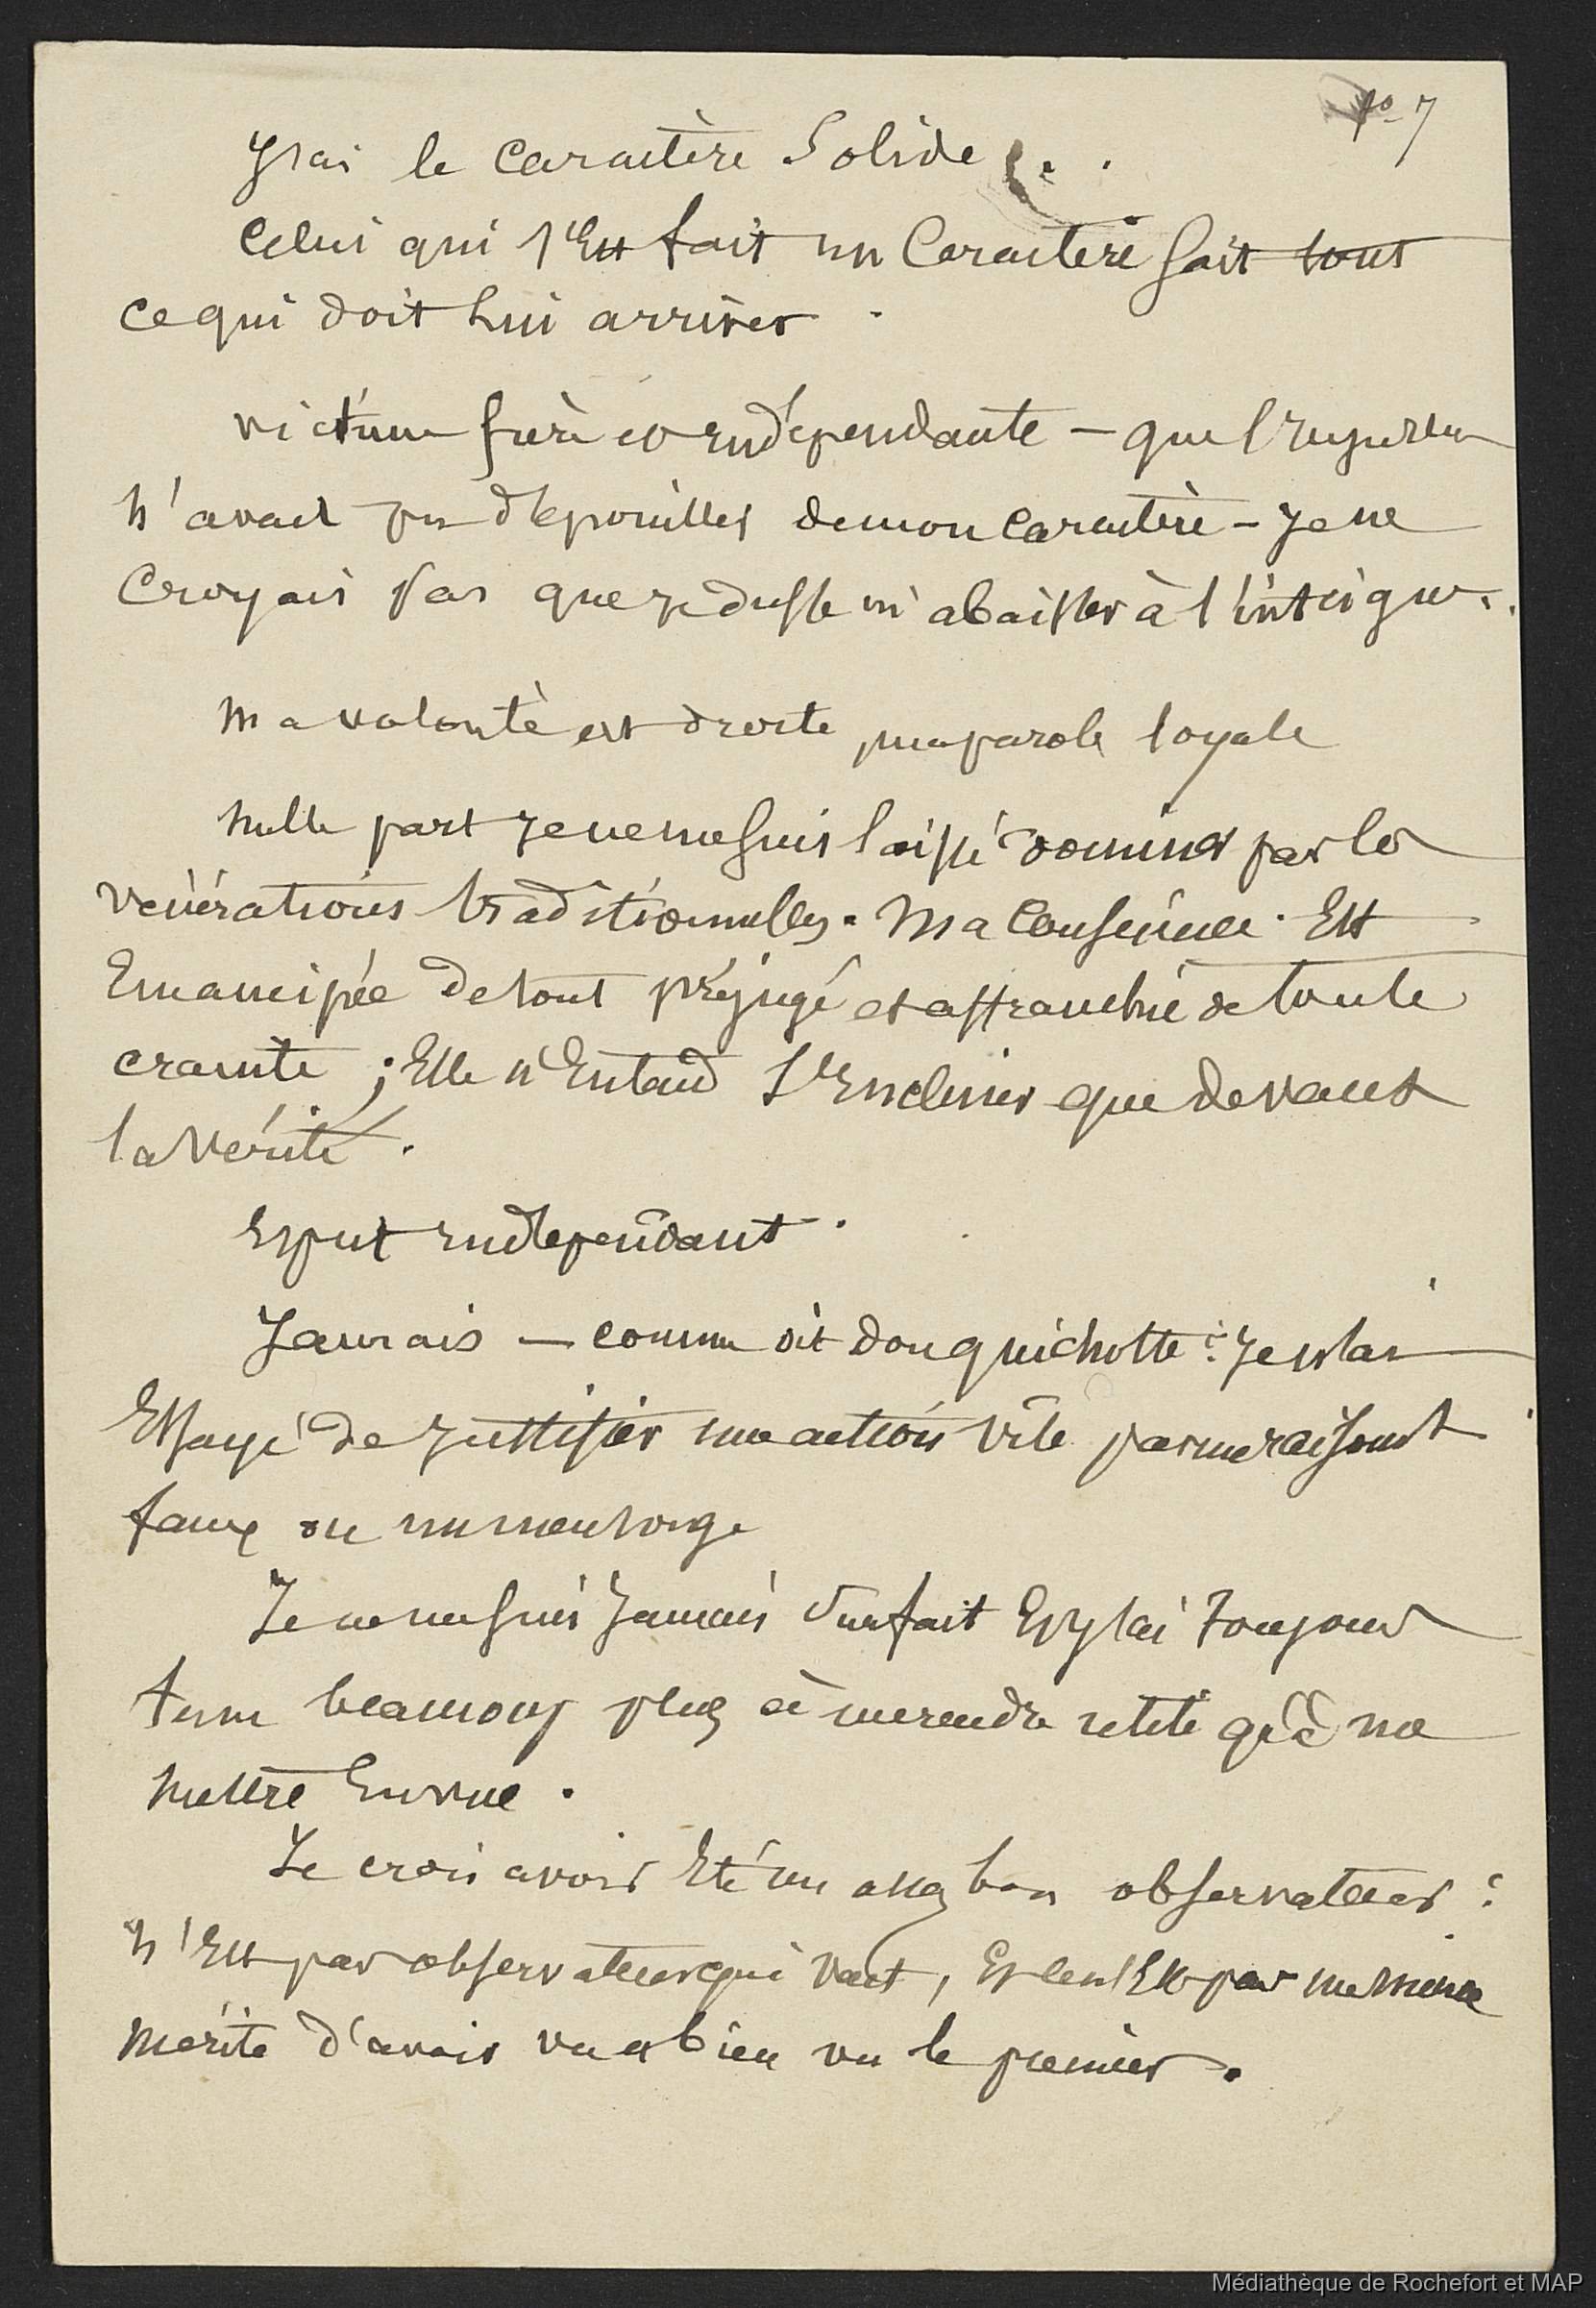 fo 7
J'ai le caractère Solide . .
Celui qui s'Est fait un Caractère Sait tout
ce qui doit lui arriver .
victime fière et indépendante — que
n'avait pu dépouiller de mon caractère — je ne
Croyais pas que je dusse m'abaisser à l'intrigue..
Ma volonté est droite, ma parole loyale
Nulle part je ne me suis laissé dominer par les
vénérations traditionnelles. Ma Conscience Est
Emancipée de tout préjugé et affranchie de toute
crainte ; Elle n'Entend s'incliner que devant
la Vérité .
Esprit indépendant .
Jamais — comme dit don quichotte : je n'ai
Essayé de justifier une action vile par un raisont
faux ou un mensonge
Je ne me suis Jamais Surfait Et j'ai Toujours
tenu beaucoup plus à me rendre utile qu'à me
mettre En vue .
Je crois avoir Eté un assez bon observateur :
N'Est pas observateur qui veut, Et ce n'Est pas un mince
Mérite d'avoir vu et bien vu le premier .
Médiathèque de Rochefort et MAP